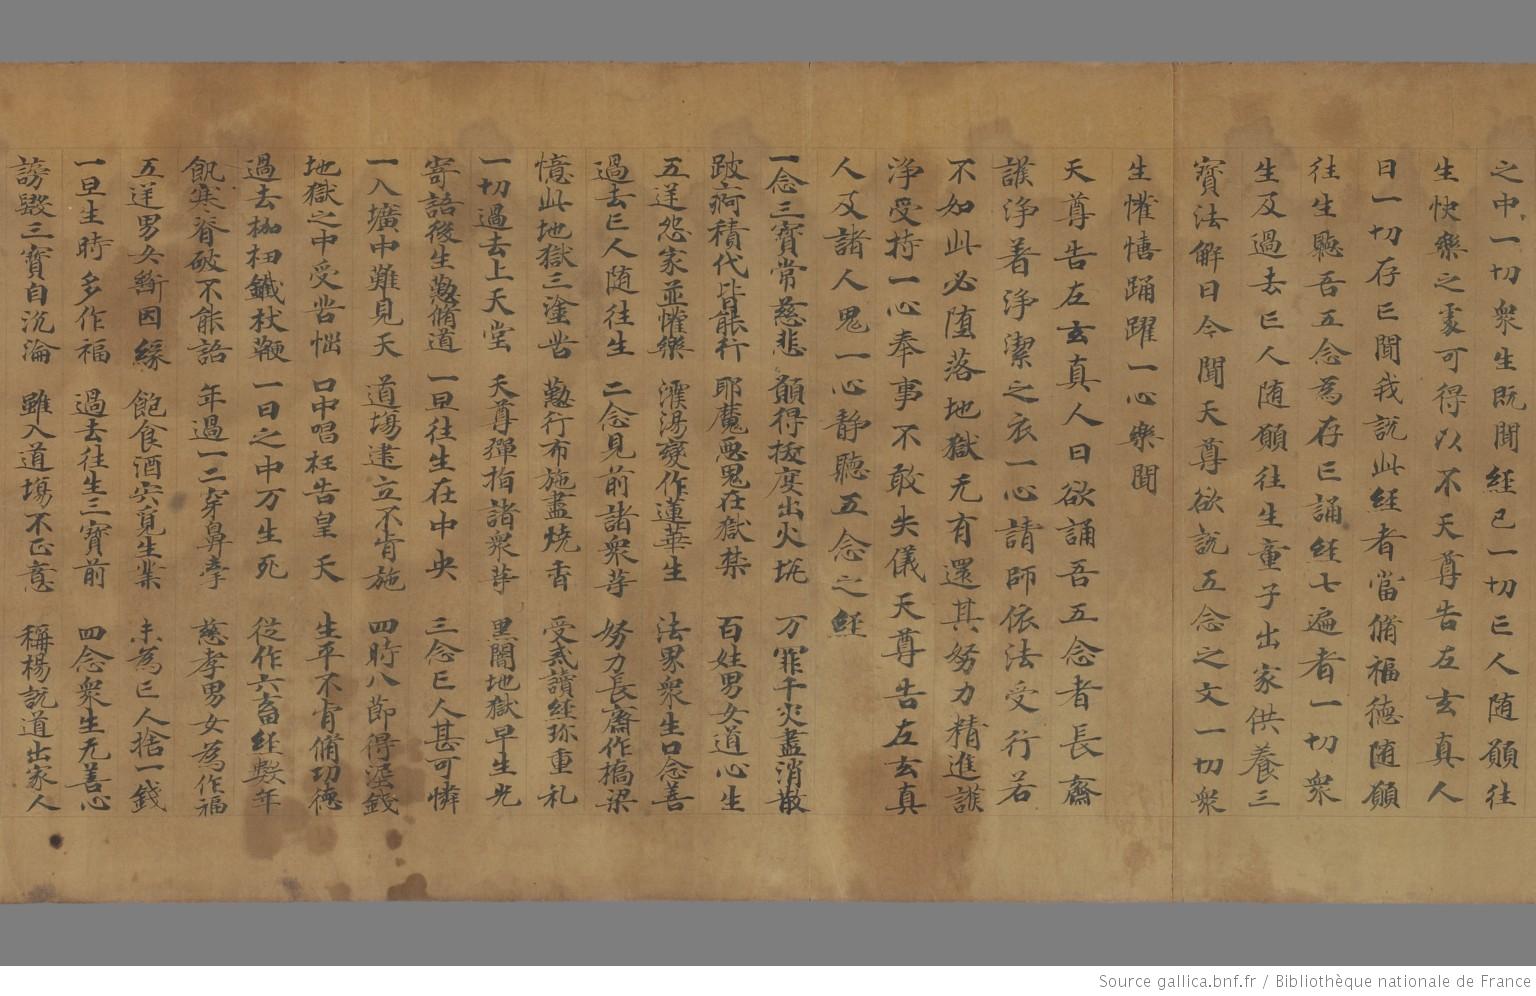 之中一切衆生既聞經已一切亡人随願往
生快樂之處可得以不天尊告左玄真人
曰一切存亡聞我說此經者當脩福德随願
往生聽吾五念為存亡誦經七遍者一切衆
生及過去亡人随願往生童子出家供養三
寶法解曰今聞天尊欲說五念之文一切衆
生懽憘踊躍一心樂聞
天尊告左玄真人曰欲誦吾五念者長齋
護浄著浄潔之衣一心請師依法受行若
不如此必堕落地獄无有還其努力精進護
浄受持一心奉事不敢失儀天尊告左玄真
人及諸人鬼一心静聽五念之經
一念三寶常慈悲 願得拔度出火坑 万罪千灾盡消散
跛痾積代皆能行 耶魔惡鬼在獄禁 百姓男女道心生
五逆怨家並懽樂 濩湯變作蓮華生 法界衆生口念善
過去亡人随往生 二念見前諸衆等 努力長齋作橋梁
憶此地獄三塗苦 懃行布施盡燒香 受戒讀經珎重礼
一切過去上天堂 天尊彈指諸衆等 黒闇地獄早生光
寄語後生懃脩道 一旦往生在中央 三念亡人甚可憐
一入壙中難見天 道場建立不肯施 四時八節得埿錢
地獄之中受苦惱 口中唱枉告皇天 生平不肯脩功德
過去枷杻鐵杖鞭 一日之中万生死 從作六畜經數年
飢寒脊破不能語 年過一二穿鼻牽 慈孝男女為作福
五逆男女斷因緣 飽食酒宍覓生業 未為亡人捨一錢
一旦生時多作福 過去往生三寶前 四念衆生无善心
謗毀三寶自沉淪 雖入道場不正意 稱楊說道出家人
Source gallica.bnf.fr / Bibliothèque nationale de France